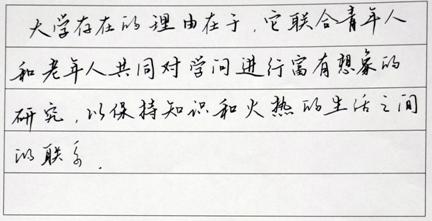 大学存在的理由在于，它联合青年人
和老年人共同对学问进行富有想象的
研究，以保持知识和火热的生活之间
的联系．